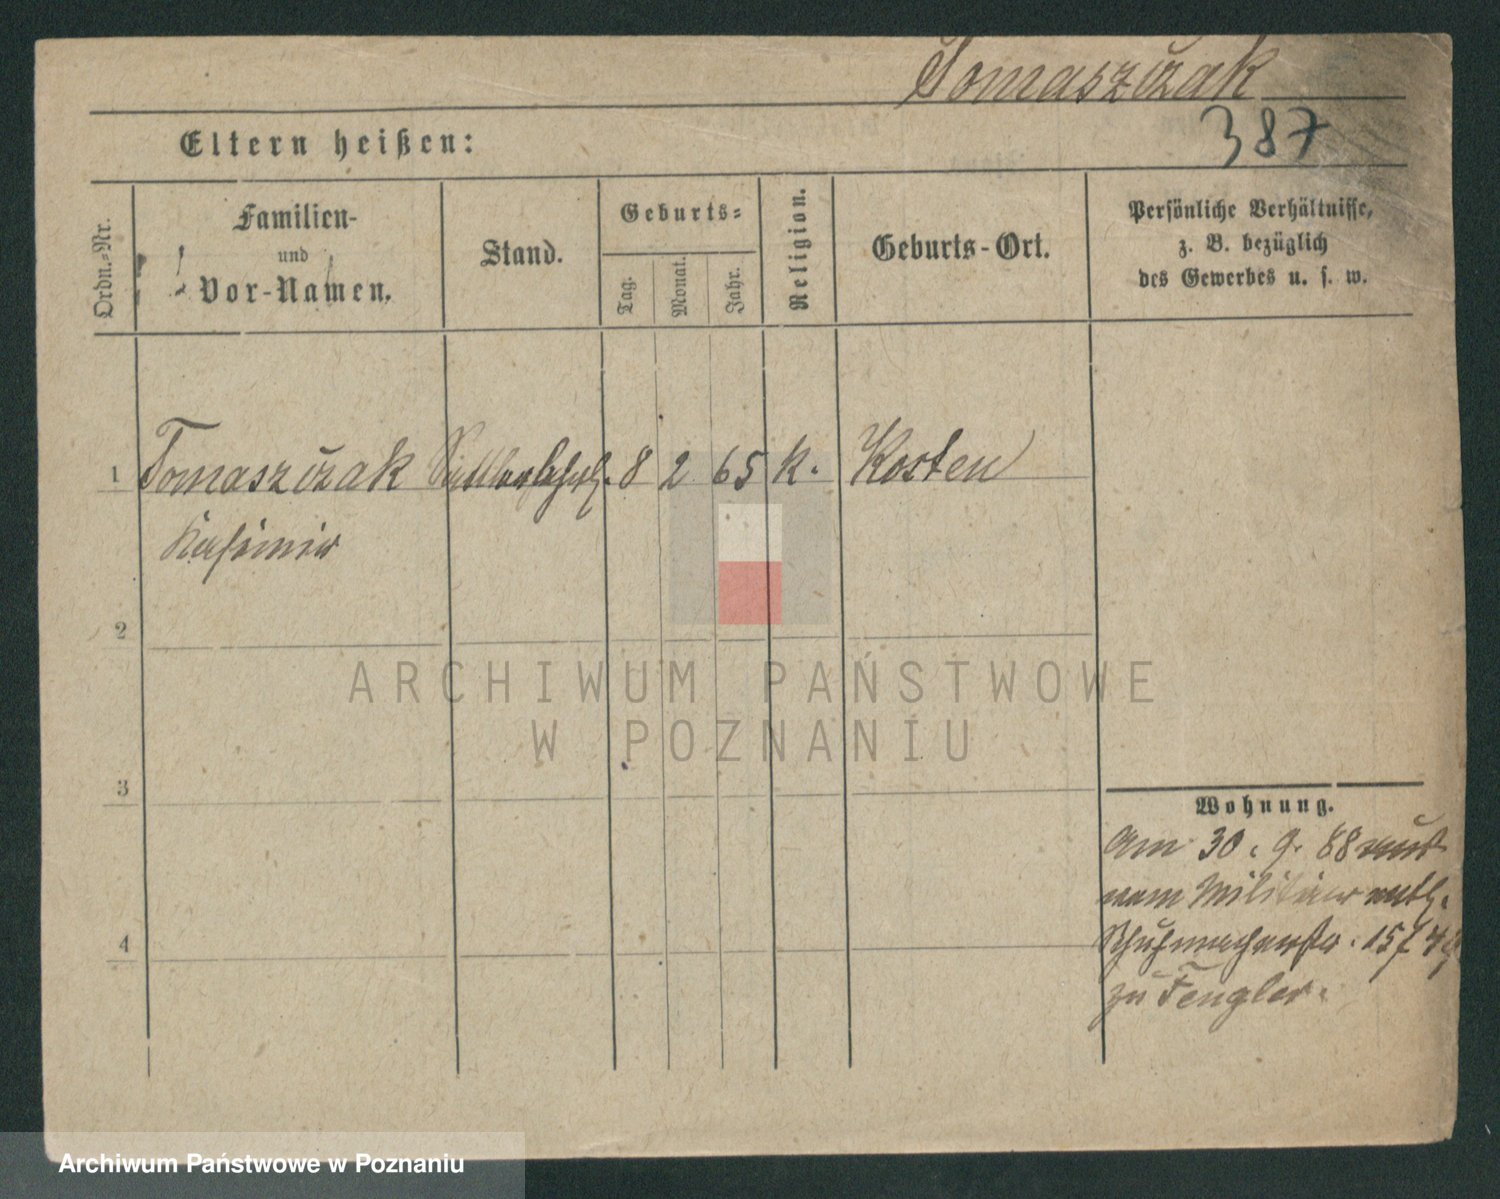 Tomaszczak
387
Eltern heißen:
Ordn.-Nr.
Familien-
und
Vor-Namen.
Stand.
Geburts-
Tag.
Monat.
Jahr.
Religion.
Geburts-Ort.
Persönliche Verhältnisse,
z. B. bezüglich
des Gewerbes u. s. w.
1 Tomaszczak Sattlerlehrl. 8 2 65 k. Kosten
Kasimir
2
ARCHIWUM PAŃSTWOWE
W POZNANIU
3
Wohnung.
Am 30. 9. 88
vom Militär entl.
4
Schuhmacherstr. 15
zu Tengler.
Archiwum Państwowe w Poznaniu